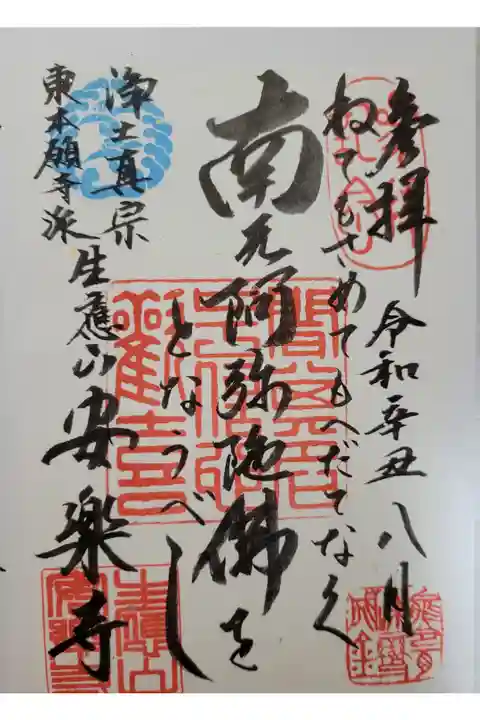 参拝 令和辛丑 八月
ねてもさめてもへだてなく
南无阿弥陀佛を
となうべし
浄土真宗
東本願寺派
生應山 安楽寺
聞其名号
信心
歓喜